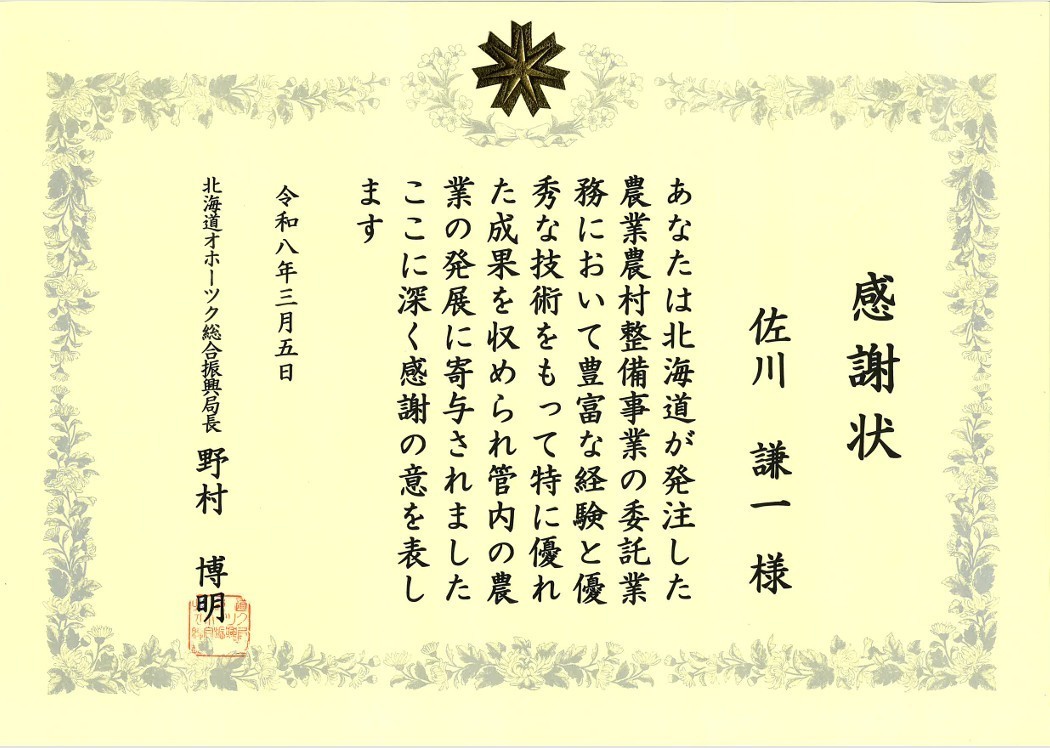 感謝状
佐川 謙一 様
あなたは北海道が発注した
農業農村整備事業の委託業
務において豊富な経験と優
秀な技術をもって特に優れ
た成果を収められ管内の農
業の発展に寄与されました
ここに深く感謝の意を表し
ます
令和八年三月五日
北海道オホーツク総合振興局長 野村 博明